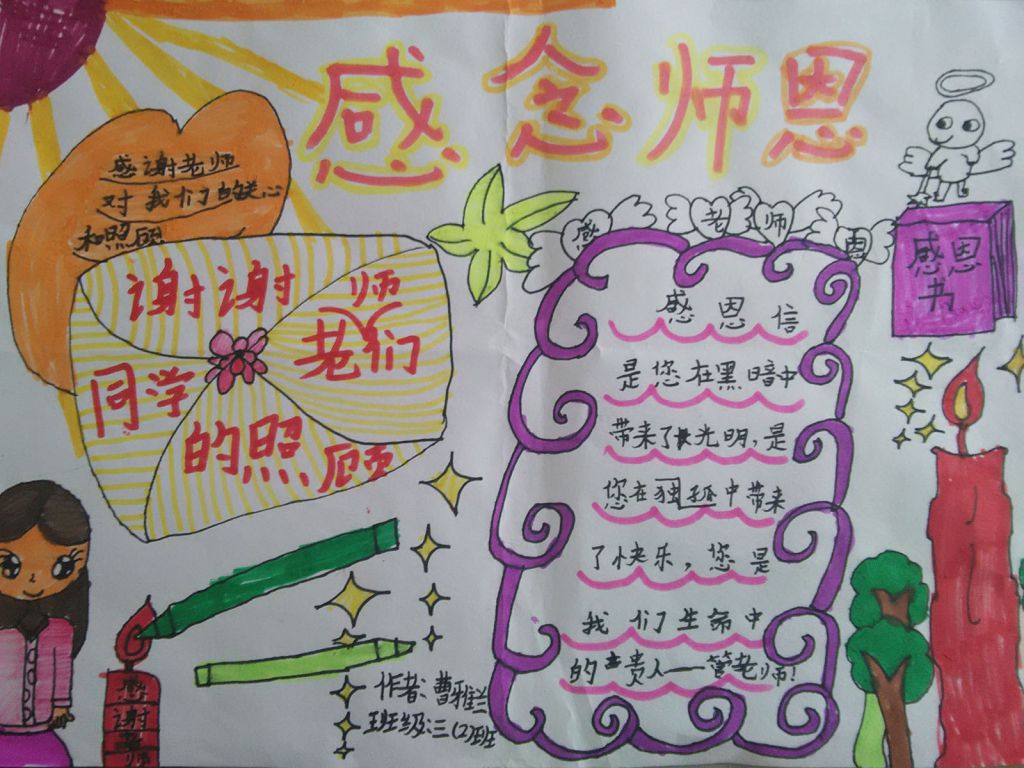 感念师恩
感谢老师
对我们的关心
和照顾
谢谢老师们
同学
的照顾
感老师恩
感恩书
感恩信
是您在黑暗中
带来了光明,是
您在孤独中带来
了快乐,您是
我们生命中
的贵人——管老师!
作者:曹雅兰
班级:三(2)班
感谢老师